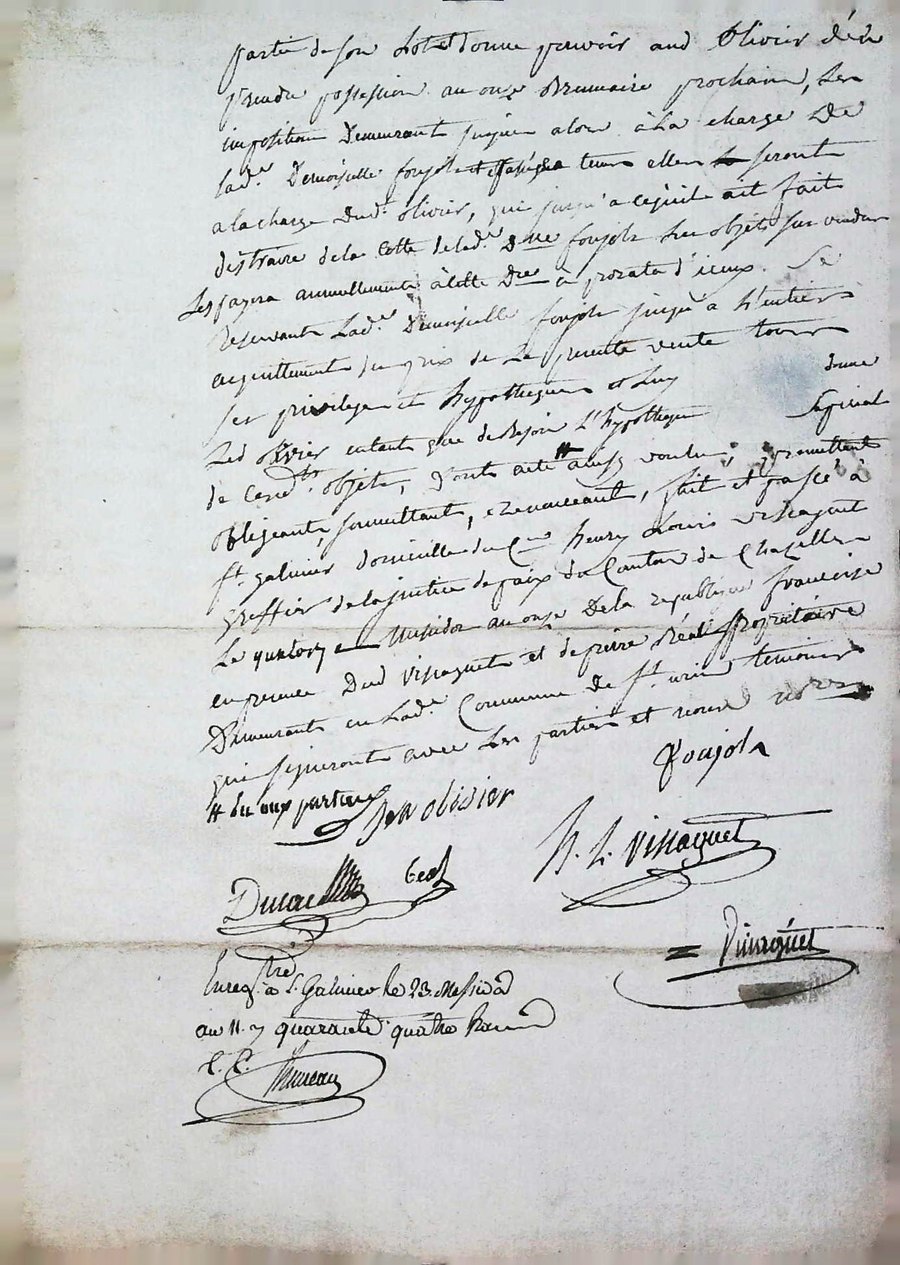 partie de son Lot et donne pouvoir aud Olivier d'en
prendre possession au onze Brumaire prochain, Les
impositions Demeurant jusques alors à La charge De
lad.e Demoiselle foujols et passé ce tems elles seront
a la charge dud.t olivier, qui jusqu'a ce qu'il ait fait
distraire de la Cotte de lad.e Dlle foujols Les objets sus vendus
Les payera annuellement à lade Dlle à prorata d'iceux. Se
Reservant Lad.e Demoiselle foujols jusqu'à L'entier
acquittement du prix de La presente vente tous
ses privileges et hypotheques et luy donne
Led olivier entant que de Besoin L'hypotheque Special
de cesd.ts objets, Dont acte # ainsy voulu, promettant
obligeant, soumettant, Renonceant, fait et passé à
st. galmier domicille du C.en henry Louis vissaguet
greffier de la justice de paix du Canton de Chazelles
Le quatorze Messidor an onze De la republique francoise
en presence Dud Vissaguet et de pierre Réal Propriétaire
Demeurant en Lad.e Commune de st. temoins
qui signeront avec Les parties et nous no.re
# lu aux parties
foujols
Jean olivier
h. L. vissaguet
Enreg.tré a S.t Galmier le 23. Messidor
an 11. quarante quatre francs